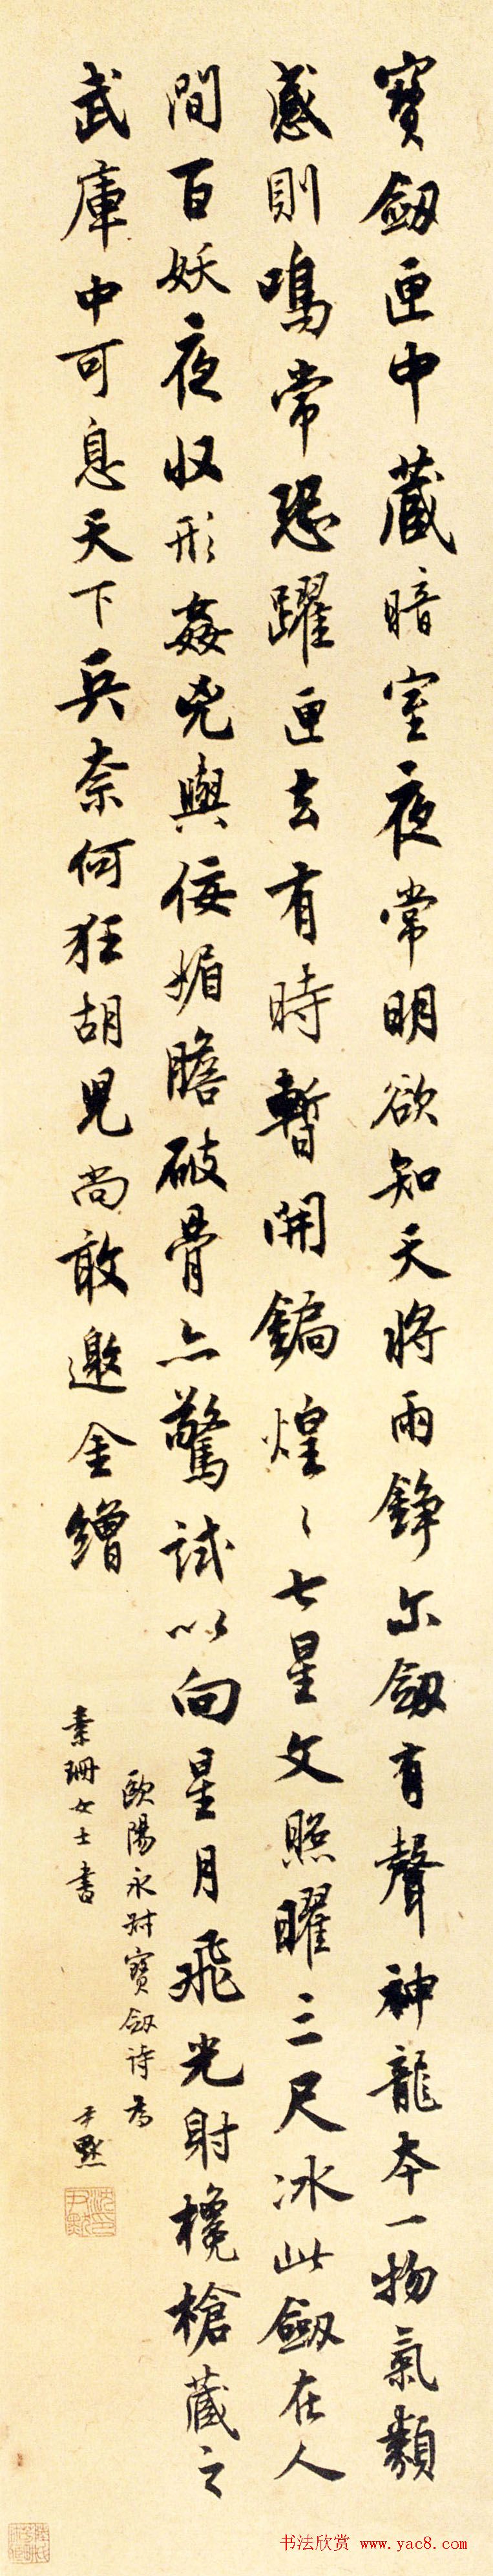 寶劒匣中藏暗室夜常明欲知天將雨錚尒劒有聲神龍本一物氣類
感則鳴常恐躍匣去有時暫開鐍煌〻七星文照曜三尺冰此劒在人
間百妖夜収形姦兇與佞媚膽破骨亦驚試以向星月飛光射欃槍藏之
武庫中可息天下兵奈何狂胡兒尚敢邀金繒
歐陽永叔寶劒诗為
素珊女士書
尹默
沈尹默印
书法欣赏 www.yac8.com